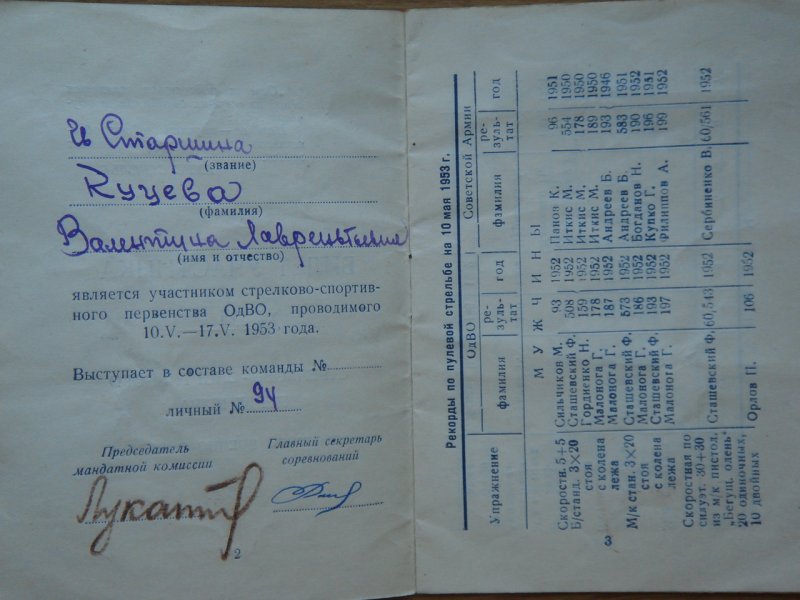 Старшина
(звание)
Куцева
(фамилия)
Валентина Лаврентьевна
(имя и отчество)
является участником стрелково-спортив-
ного первенства ОдВО, проводимого
10.V.—17.V. 1953 года.
Выступает в составе команды №
личный № 94
Председатель
мандатной комиссии
Главный секретарь
соревнований
2
Рекорды по пулевой стрельбе на 10 мая 1953 г.
Упражнение ОдВО Советской Армии
фамилия ре-зуль-тат год фамилия ре-зуль-тат год
МУЖЧИНЫ
Скорости. 5+5 Сильчиков М. 93 1952 Панов К. 96 1951
Б/станд. 3×20 Сташевский Ф. 508 1952 Иткис М. 554 1950
стоя Гордисенко Н. 159 1952 Иткис М. 178 1950
с колена Малонога Г. 178 1952 Иткис М. 189 1950
лежа Малонога Г. 187 1952 Андреев Б. 193 1946
М/к стан. 3×20 Сташевский Ф. 573 1952 Андреев Б. 583 1951
стоя Малонога Г. 186 1952 Богданов Н. 190 1952
с колена Сташевский Ф. 193 1952 Купко Г. 196 1951
лежа Малонога Г. 197 1952 Филиппов А. 199 1952
Скоростная по
силуэт. 30+30
из м/к пистол. Сташевский Ф. 60,543 1952 Сербиненко В. 60/561 1952
„Бегущ. олень"
20 одиночных,
10 двойных Орлов П. 106 1952
3